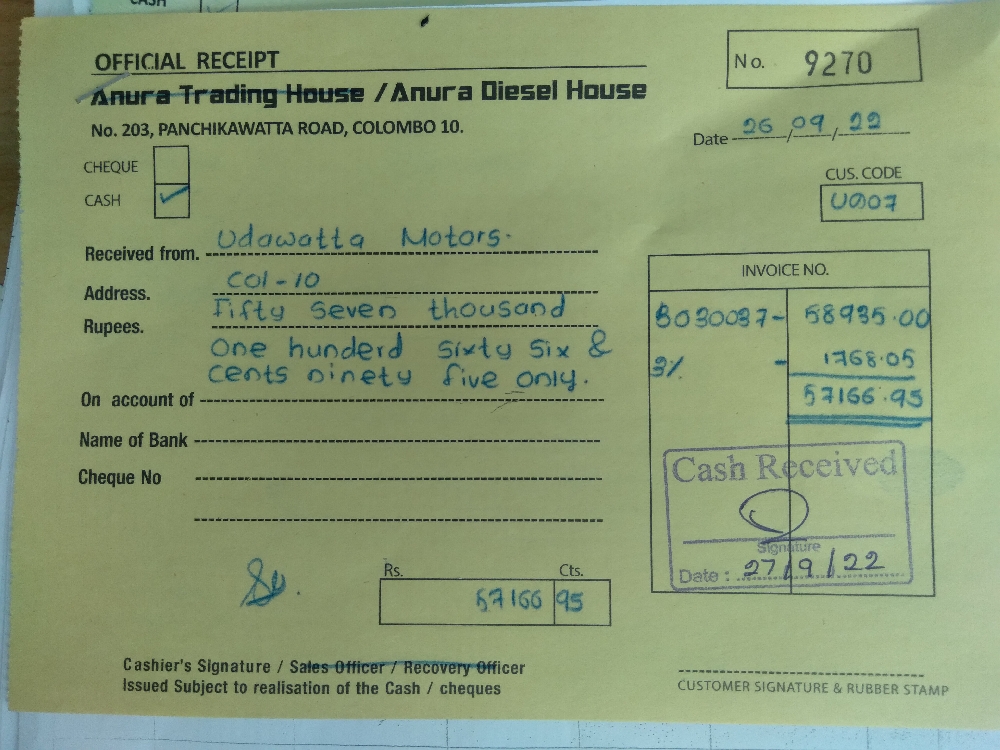 CASH
OFFICIAL RECEIPT
No. 9270
Anura Trading House / Anura Diesel House
No. 203, PANCHIKAWATTA ROAD, COLOMBO 10.
Date 26/09/22
CHEQUE
CASH ✓
CUS. CODE
U007
Received from. Udawatta Motors.
Address. Col-10
Rupees. Fifty seven thousand
One hunderd sixty six &
cents ninety five only.
On account of
Name of Bank
Cheque No
INVOICE NO.
B030037- 58935.00
3% - 1768.05
57166.95
Cash Received
Signature
Date : 27/9/22
Rs. Cts.
57166 95
Cashier's Signature / Sales Officer / Recovery Officer
Issued Subject to realisation of the Cash / cheques
CUSTOMER SIGNATURE & RUBBER STAMP